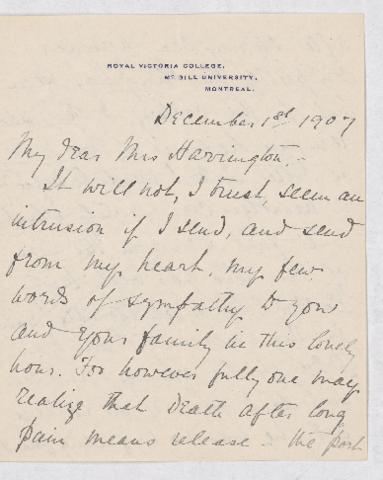 ROYAL VICTORIA COLLEGE,
McGILL UNIVERSITY,
MONTREAL.
December 1st 1907
My dear Mrs Harrington,-
It will not, I trust, seem an
intrusion if I send, and send
from my heart, my few
words of sympathy to you
and your family in this lonely
hour. For however fully one may
realize that Death after long
pain means release - the part